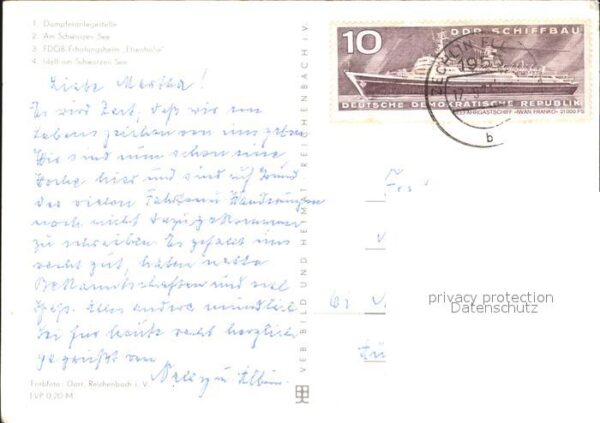 1. Dampferanlegestelle
2. Am Schwarzen See
3. FDGB-Erholungsheim „Elsenhöhe"
4. Idyll am Schwarzen See
Liebe Marika!
Es wird Zeit, daß wir ein
Lebenszeichen von uns geben.
Wir sind nun schon eine
Woche hier und sind auf Grund
der vielen Fahrten u. Wanderungen
noch nicht dazu gekommen
zu schreiben. Es gefällt uns
recht gut, haben nette
Bekanntschaften und viel
Spaß. Alles andere mündlich.
Sei für heute recht herzlich
gegrüßt von
u. Albin.
Farbfoto: Darr, Reichenbach i. V.
EVP 0,20 M
VEB BILD UND HEIMAT REICHENBACH I. V.
10
DDR SCHIFFBAU
DEUTSCHE DEMOKRATISCHE REPUBLIK
FAHRGASTSCHIFF »IWAN FRANKO« 21000 PS
b
privacy protection
Datenschutz